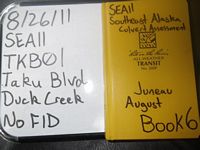 8/26/11
SEAII
TKBO
Taku Blvd
Duck Creek
No FID
SEAII
Southeast Alaska
Culvert Assessment
Rite in the Rain
ALL-WEATHER
TRANSIT
Juneau
August
Book 6